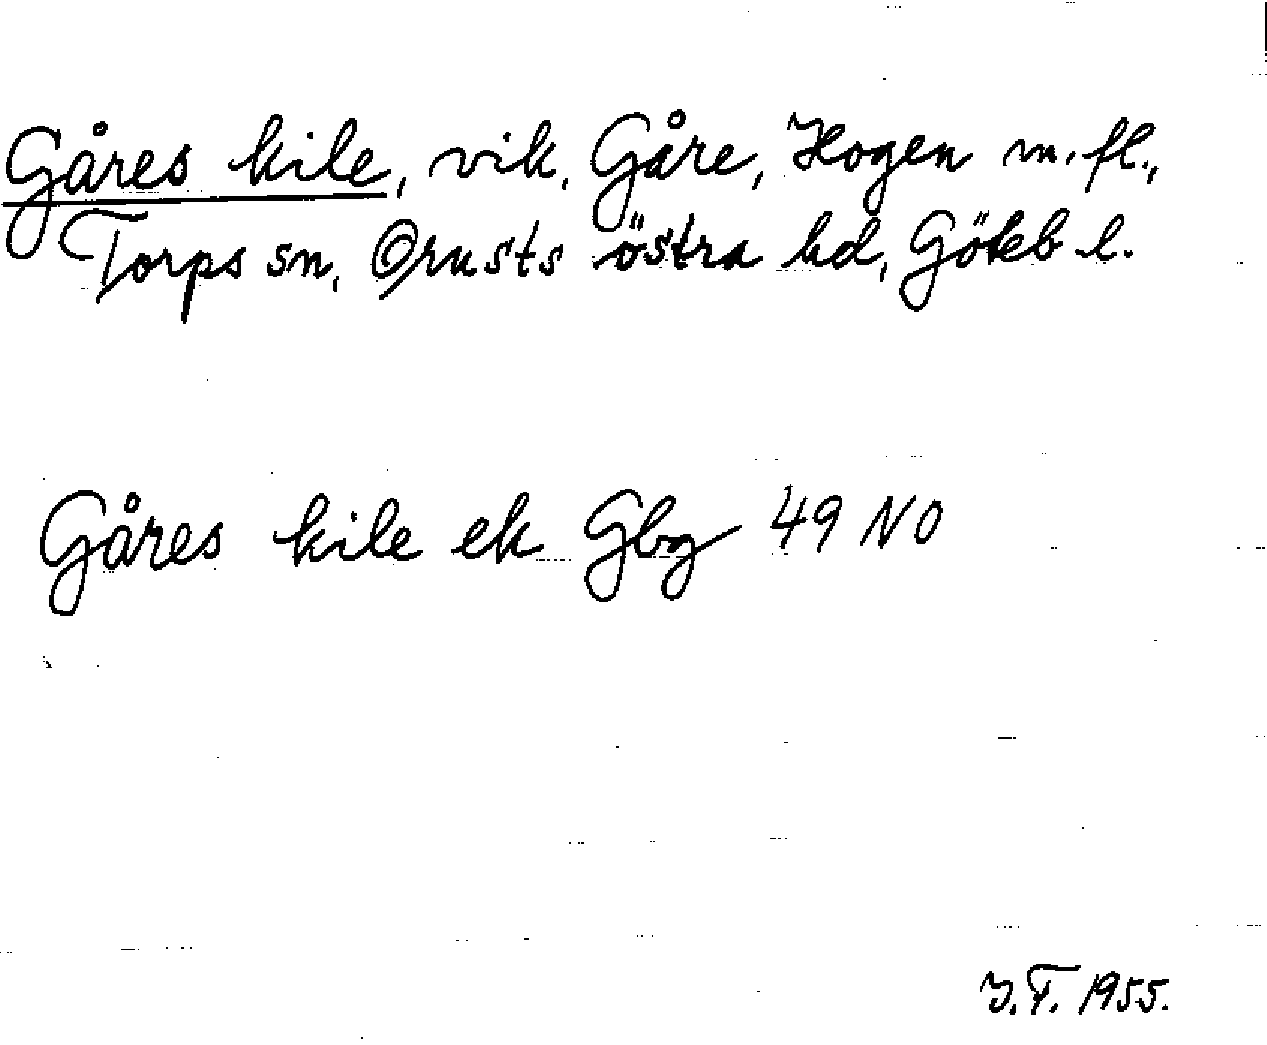 Gåres kile, vik, Gåre, Hogen m. fl.,
Torps sn, Orusts östra hd, Götebl.
Gåres kile ek Gbg 49 NO
J.T. 1955.